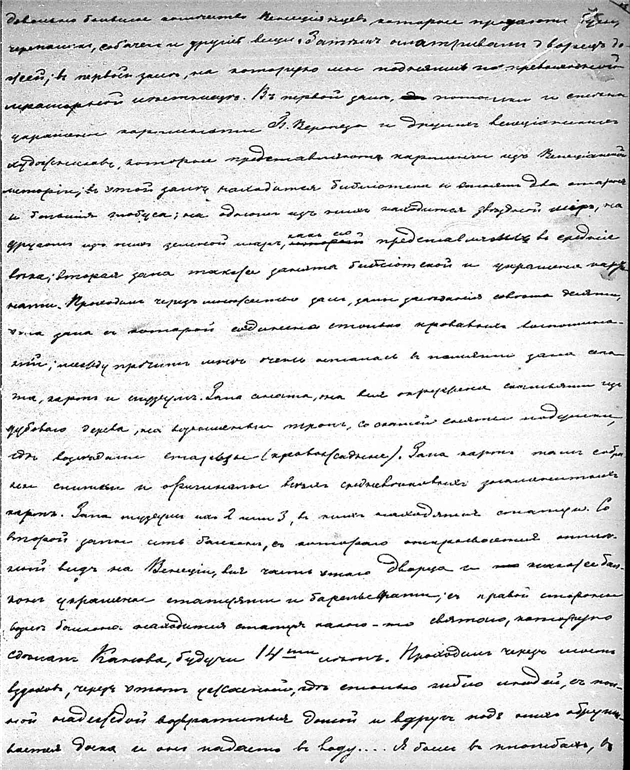 довольно большое количество Венецiянцевъ которые продаютъ
черепашки, собачекъ и другiя вещи. Затѣмъ осматривали дворецъ до-
жей; въ первой залѣ, на которую мы поднялись по превосходной
мраморной лѣстницѣ. Въ первой залѣ, потолки и стѣны
украшены картинами П. Веронеза и другихъ венецiанскихъ
художниковъ, которые представляютъ картины изъ Венецiанской
исторiи; въ этой залѣ находится библiотека и стоятъ два старые
и большiя глобуса; на одномъ изъ нихъ находится звѣздный шаръ, на
другомъ изъ нихъ земной шаръ, какъ его представляли въ среднiе
вѣка; вторая зала также занята библiотекой и украшена карти-
нами. Проходимъ черезъ множество залъ, залы засѣданiя совѣта десяти,
эта зала съ которой соединено столько кровавыхъ воспомина-
нiй; между прочимъ мнѣ очень осталась въ памяти зала сена-
та, картъ и скульпт. Зала сената, она вся окружена скамьями изъ
дубоваго дерева, на возвышенiи тронъ, со скамей сняты подушки,
гдѣ возсѣдали старцы (кровожадные). Зала картъ тамъ собра-
ны снимки и оригиналы всѣхъ средневѣковыхъ знаменитыхъ
картъ. Зала скульптуры ихъ 2 или 3, въ нихъ находятся статуи. Со
второй залы есть балконъ, съ котораго открывается отлич-
ный видъ на Венецiю, вся часть этого дворца и также бал-
конъ украшены статуями и барельефами; съ правой стороны
возлѣ балкона находится статуя какого-то святого, которую
сдѣлалъ Канова, будучи 14ти лѣтъ. Проходимъ черезъ мостъ
вздоховъ, черезъ этотъ ужасный, гдѣ столько гибло людей, съ пол-
ной надеждой возвратиться домой и вдругъ подъ ними обруши-
вается доска и они падаютъ въ воду.... Я былъ въ пломбахъ, въ